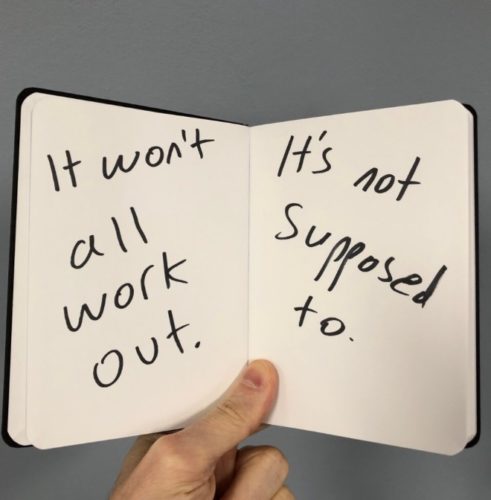 It won't
all
work
out.
It's not
supposed
to.